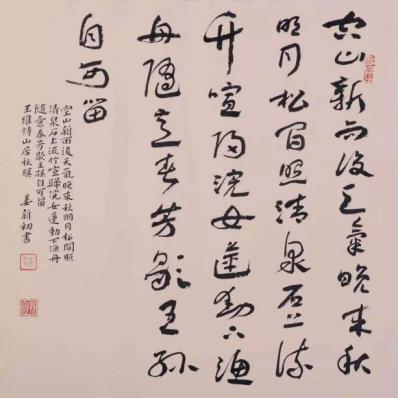 空山新雨後天氣晚來秋
明月松間照清泉石上流
竹喧歸浣女蓮動下漁
舟隨意春芳歇王孫
自可留
空山新雨後天氣晚來秋明月松間照
清泉石上流竹喧歸浣女蓮動下漁舟
隨意春芳歇王孫自可留
王維詩山居秋暝 姜新初書